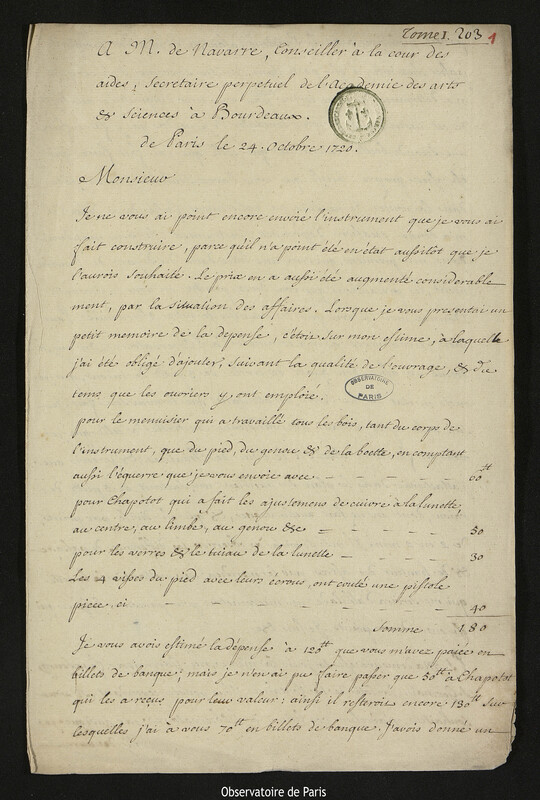 Tome I. 203 1
A M. de Navarre, Conseiller à la cour des
aides, Secretaire perpetuel de l'academie des arts
& Sciences à Bourdeaux.
de Paris le 24. Octobre 1720.
Monsieur
Je ne vous ai point encore envoié l'instrument que je vous ai
fait construire, parce qu'il n'a point été en état aussitot que je
l'aurois souhaité. Le prix en a aussi été augmenté considerable
ment, par la situation des affaires. Lorsque je vous presentai un
petit memoire de la depense, c'étois sur mon estime, à laquelle
j'ai été obligé d'ajouter, suivant la qualité de l'ouvrage, & du
tems que les ouvriers y ont emploié.
OBSERVATOIRE DE PARIS
pour le menuisier qui a travaillé tous les bois, tant du corps de
l'instrument, que du pied, du genou & de la boette, en comptant
aussi l'équerre que je vous envoie avec – – – – – 60tt
pour Chapotot qui a fait les ajustemens de cuivre à la lunette,
au centre, au limbe, au genou &c – – – – – 50
pour les verres & le tuiau de la lunette – – – – 30
Les 4 visses du pied avec leurs écrous, ont couté une pistole
piece, ci – – – – – – – – 40
Somme 180
Je vous avois estimé la dépense à 120tt que vous m'avez paiée en
billets de banque, mais je n'en ai pu faire passer que 50tt à Chapotot
qui les a reçus pour leur valeur: ainsi il resteroit encore 130tt sur
lesquelles j'ai à vous 70tt en billets de banque. J'avois donné un
Observatoire de Paris